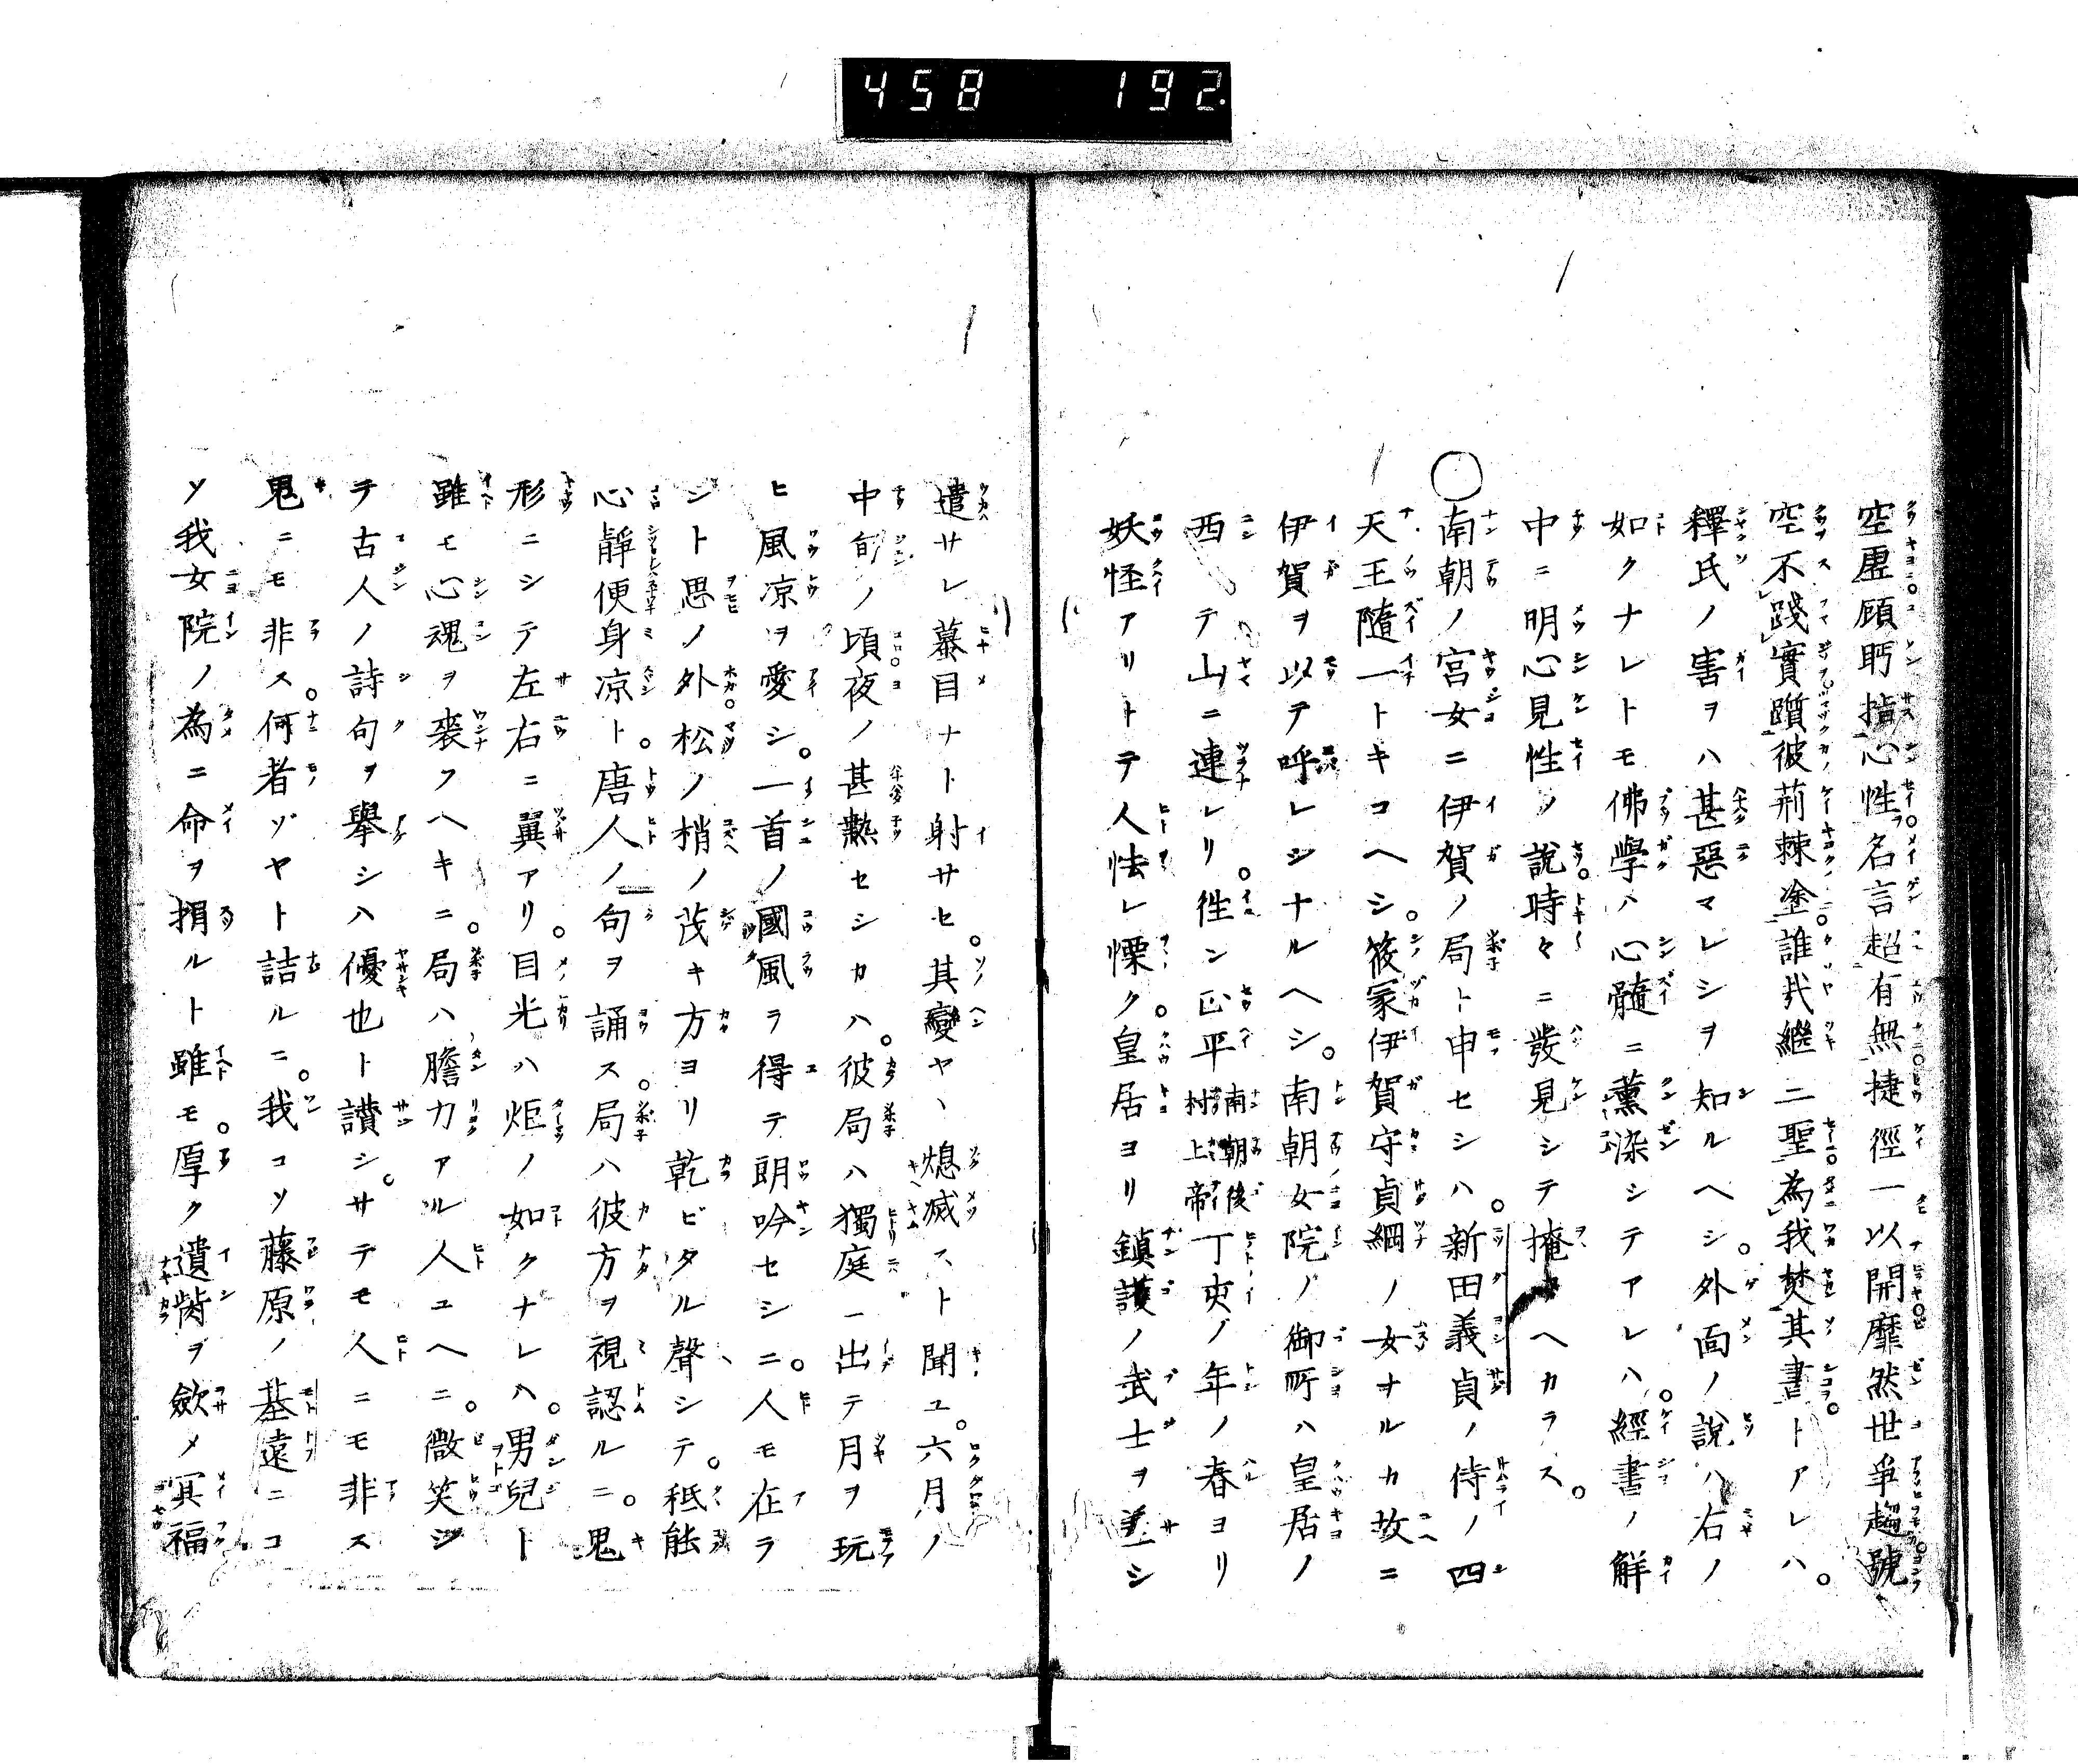 458 192.
空虚顧眄指心性名言超有無捷徑一以開靡然世爭趨號
空不踐實躓彼荊棘塗誰哉繼三聖為我焚其書トアレハ。
釋氏ノ害ヲハ甚惡マレシヲ知ルヘシ。外面ノ說ハ右ノ
如クナレトモ佛學ハ心髓ニ薰染シテアレハ。經書ノ解
中ニ明心見性ノ說時々ニ發見シテ掩フヘカラス。
○南朝ノ宮女ニ伊賀ノ局ト申セシハ。新田義貞ノ侍ノ四
天王隨一トキコヘシ。篠冢伊賀守貞綱ノ女ナルカ故ニ
伊賀ヲ以テ呼レシナルヘシ。南朝女院ノ御所ハ皇居ノ
西ニテ山ニ連レリ。徃ン正平南朝後村上帝丁亥ノ年ノ春ヨリ
妖怪アリトテ人怯レ慄ク。皇居ヨリ鎮護ノ武士ヲ差シ
遣サレ蟇目ナト射サセ。其變ヤヽ熄滅スト聞ユ。六月ノ
中旬ノ頃夜ノ甚熱セシカハ。彼局ハ獨庭ニ出テ月ヲ玩
ヒ風凉ヲ愛シ。一首ノ國風ヲ得テ朗吟セシニ。人モ在ラ
シト思ノ外松ノ梢ノ茂キ方ヨリ乾ビタル聲シテ。秪能
心靜便身凉ト。唐人ノ句ヲ誦ス。局ハ彼方ヲ視認ルニ。鬼
形ニシテ左右ニ翼アリ。目光ハ炬ノ如クナレハ。男兒ト
雖モ心魂ヲ喪フヘキニ。局ハ膽力アル人ユヘニ。微笑シ
テ古人ノ詩句ヲ擧シハ優也ト讃シ。サテモ人ニモ非ス
鬼ニモ非ス。何者ゾヤト詰ルニ。我コソ藤原ノ基遠ニコ
ソ我女院ノ為ニ命ヲ捐ルト雖モ。厚ク遺胔ヲ斂メ冥福